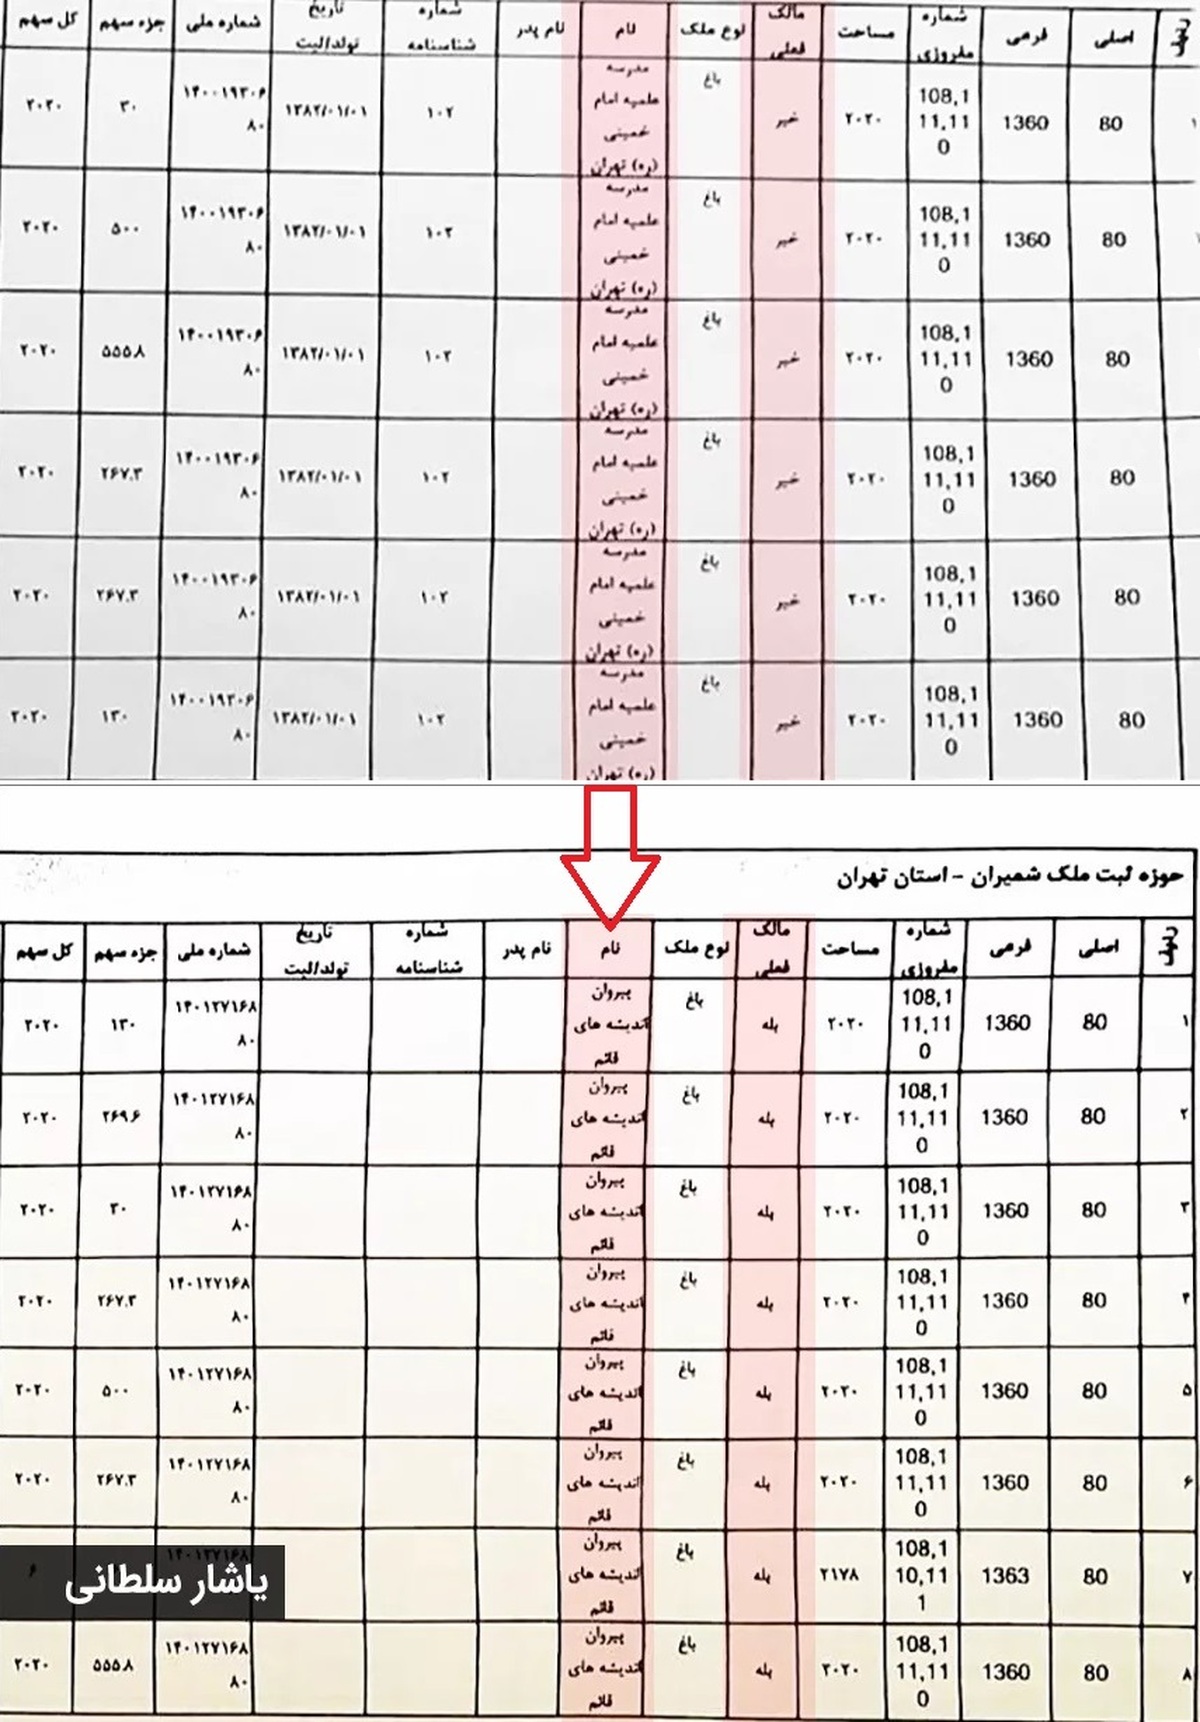 ردیف اصلی فرعی شماره مفروزی مساحت مالک فعلی نوع ملک نام نام پدر شماره شناسنامه تاریخ تولد/ثبت شماره ملی جزء سهم کل سهم
۱ 80 1360 108,111,110 ۲۰۲۰ خیر باغ مدرسه علمیه امام خمینی (ره) تهران ۱۰۲ ۱۳۸۲/۰۱/۰۱ ۱۴۰۰۱۹۳۰۶۸۰ ۳۰ ۲۰۲۰
80 1360 108,111,110 ۲۰۲۰ خیر باغ مدرسه علمیه امام خمینی (ره) تهران ۱۰۲ ۱۳۸۲/۰۱/۰۱ ۱۴۰۰۱۹۳۰۶۸۰ ۵۰۰ ۲۰۲۰
80 1360 108,111,110 ۲۰۲۰ خیر باغ مدرسه علمیه امام خمینی (ره) تهران ۱۰۲ ۱۳۸۲/۰۱/۰۱ ۱۴۰۰۱۹۳۰۶۸۰ ۵۵۵.۸ ۲۰۲۰
80 1360 108,111,110 ۲۰۲۰ خیر باغ مدرسه علمیه امام خمینی (ره) تهران ۱۰۲ ۱۳۸۲/۰۱/۰۱ ۱۴۰۰۱۹۳۰۶۸۰ ۲۶۷.۳ ۲۰۲۰
80 1360 108,111,110 ۲۰۲۰ خیر باغ مدرسه علمیه امام خمینی (ره) تهران ۱۰۲ ۱۳۸۲/۰۱/۰۱ ۱۴۰۰۱۹۳۰۶۸۰ ۲۶۷.۳ ۲۰۲۰
80 1360 108,111,110 ۲۰۲۰ خیر باغ مدرسه علمیه امام خمینی (ره) تهران ۱۰۲ ۱۳۸۲/۰۱/۰۱ ۱۴۰۰۱۹۳۰۶۸۰ ۱۳۰ ۲۰۲۰
حوزه ثبت ملک شمیران - استان تهران
ردیف اصلی فرعی شماره مفروزی مساحت مالک فعلی نوع ملک نام نام پدر شماره شناسنامه تاریخ تولد/ثبت شماره ملی جزء سهم کل سهم
۱ 80 1360 108,111,110 ۲۰۲۰ بله باغ پیروان اندیشه های قائم ۱۴۰۱۲۷۱۶۸۸۰ ۱۳۰ ۲۰۲۰
۲ 80 1360 108,111,110 ۲۰۲۰ بله باغ پیروان اندیشه های قائم ۱۴۰۱۲۷۱۶۸۸۰ ۲۶۹.۶ ۲۰۲۰
۳ 80 1360 108,111,110 ۲۰۲۰ بله باغ پیروان اندیشه های قائم ۱۴۰۱۲۷۱۶۸۸۰ ۳۰ ۲۰۲۰
۴ 80 1360 108,111,110 ۲۰۲۰ بله باغ پیروان اندیشه های قائم ۱۴۰۱۲۷۱۶۸۸۰ ۲۶۷.۳ ۲۰۲۰
۵ 80 1360 108,111,110 ۲۰۲۰ بله باغ پیروان اندیشه های قائم ۱۴۰۱۲۷۱۶۸۸۰ ۵۰۰ ۲۰۲۰
۶ 80 1360 108,111,110 ۲۰۲۰ بله باغ پیروان اندیشه های قائم ۱۴۰۱۲۷۱۶۸۸۰ ۲۶۷.۳ ۲۰۲۰
۷ 80 1363 108,110,111 ۲۱۷۸ بله باغ پیروان اندیشه های قائم ۶
یاشار سلطانی
۸ 80 1360 108,111,110 ۲۰۲۰ بله باغ پیروان اندیشه های قائم ۱۴۰۱۲۷۱۶۸۸۰ ۵۵۵.۸ ۲۰۲۰